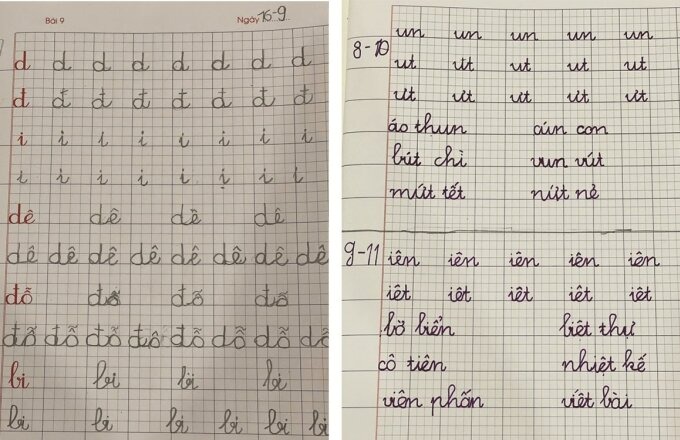 Bài 9 Ngày 15-9
d d d d d d d d
đ đ đ đ đ đ đ đ
i i i i i i i i
i i i i i i i i
dê dê dê dê
dê dê dê dê dê dê dê dê
đỗ đỗ đỗ đỗ
đỗ đỗ đỗ đỗ đỗ đỗ đỗ đỗ
bi bi bi bi
bi bi bi bi bi bi
un un un un un
8-10 ut ut ut ut ut
ưt ưt ưt ưt ưt
áo thun cún con
bút chì vun vút
mứt tết nứt nẻ
9-11 iên iên iên iên iên
iêt iêt iêt iêt iêt
bờ biển biệt thự
cô tiên nhiệt kế
viên phấn viết bài